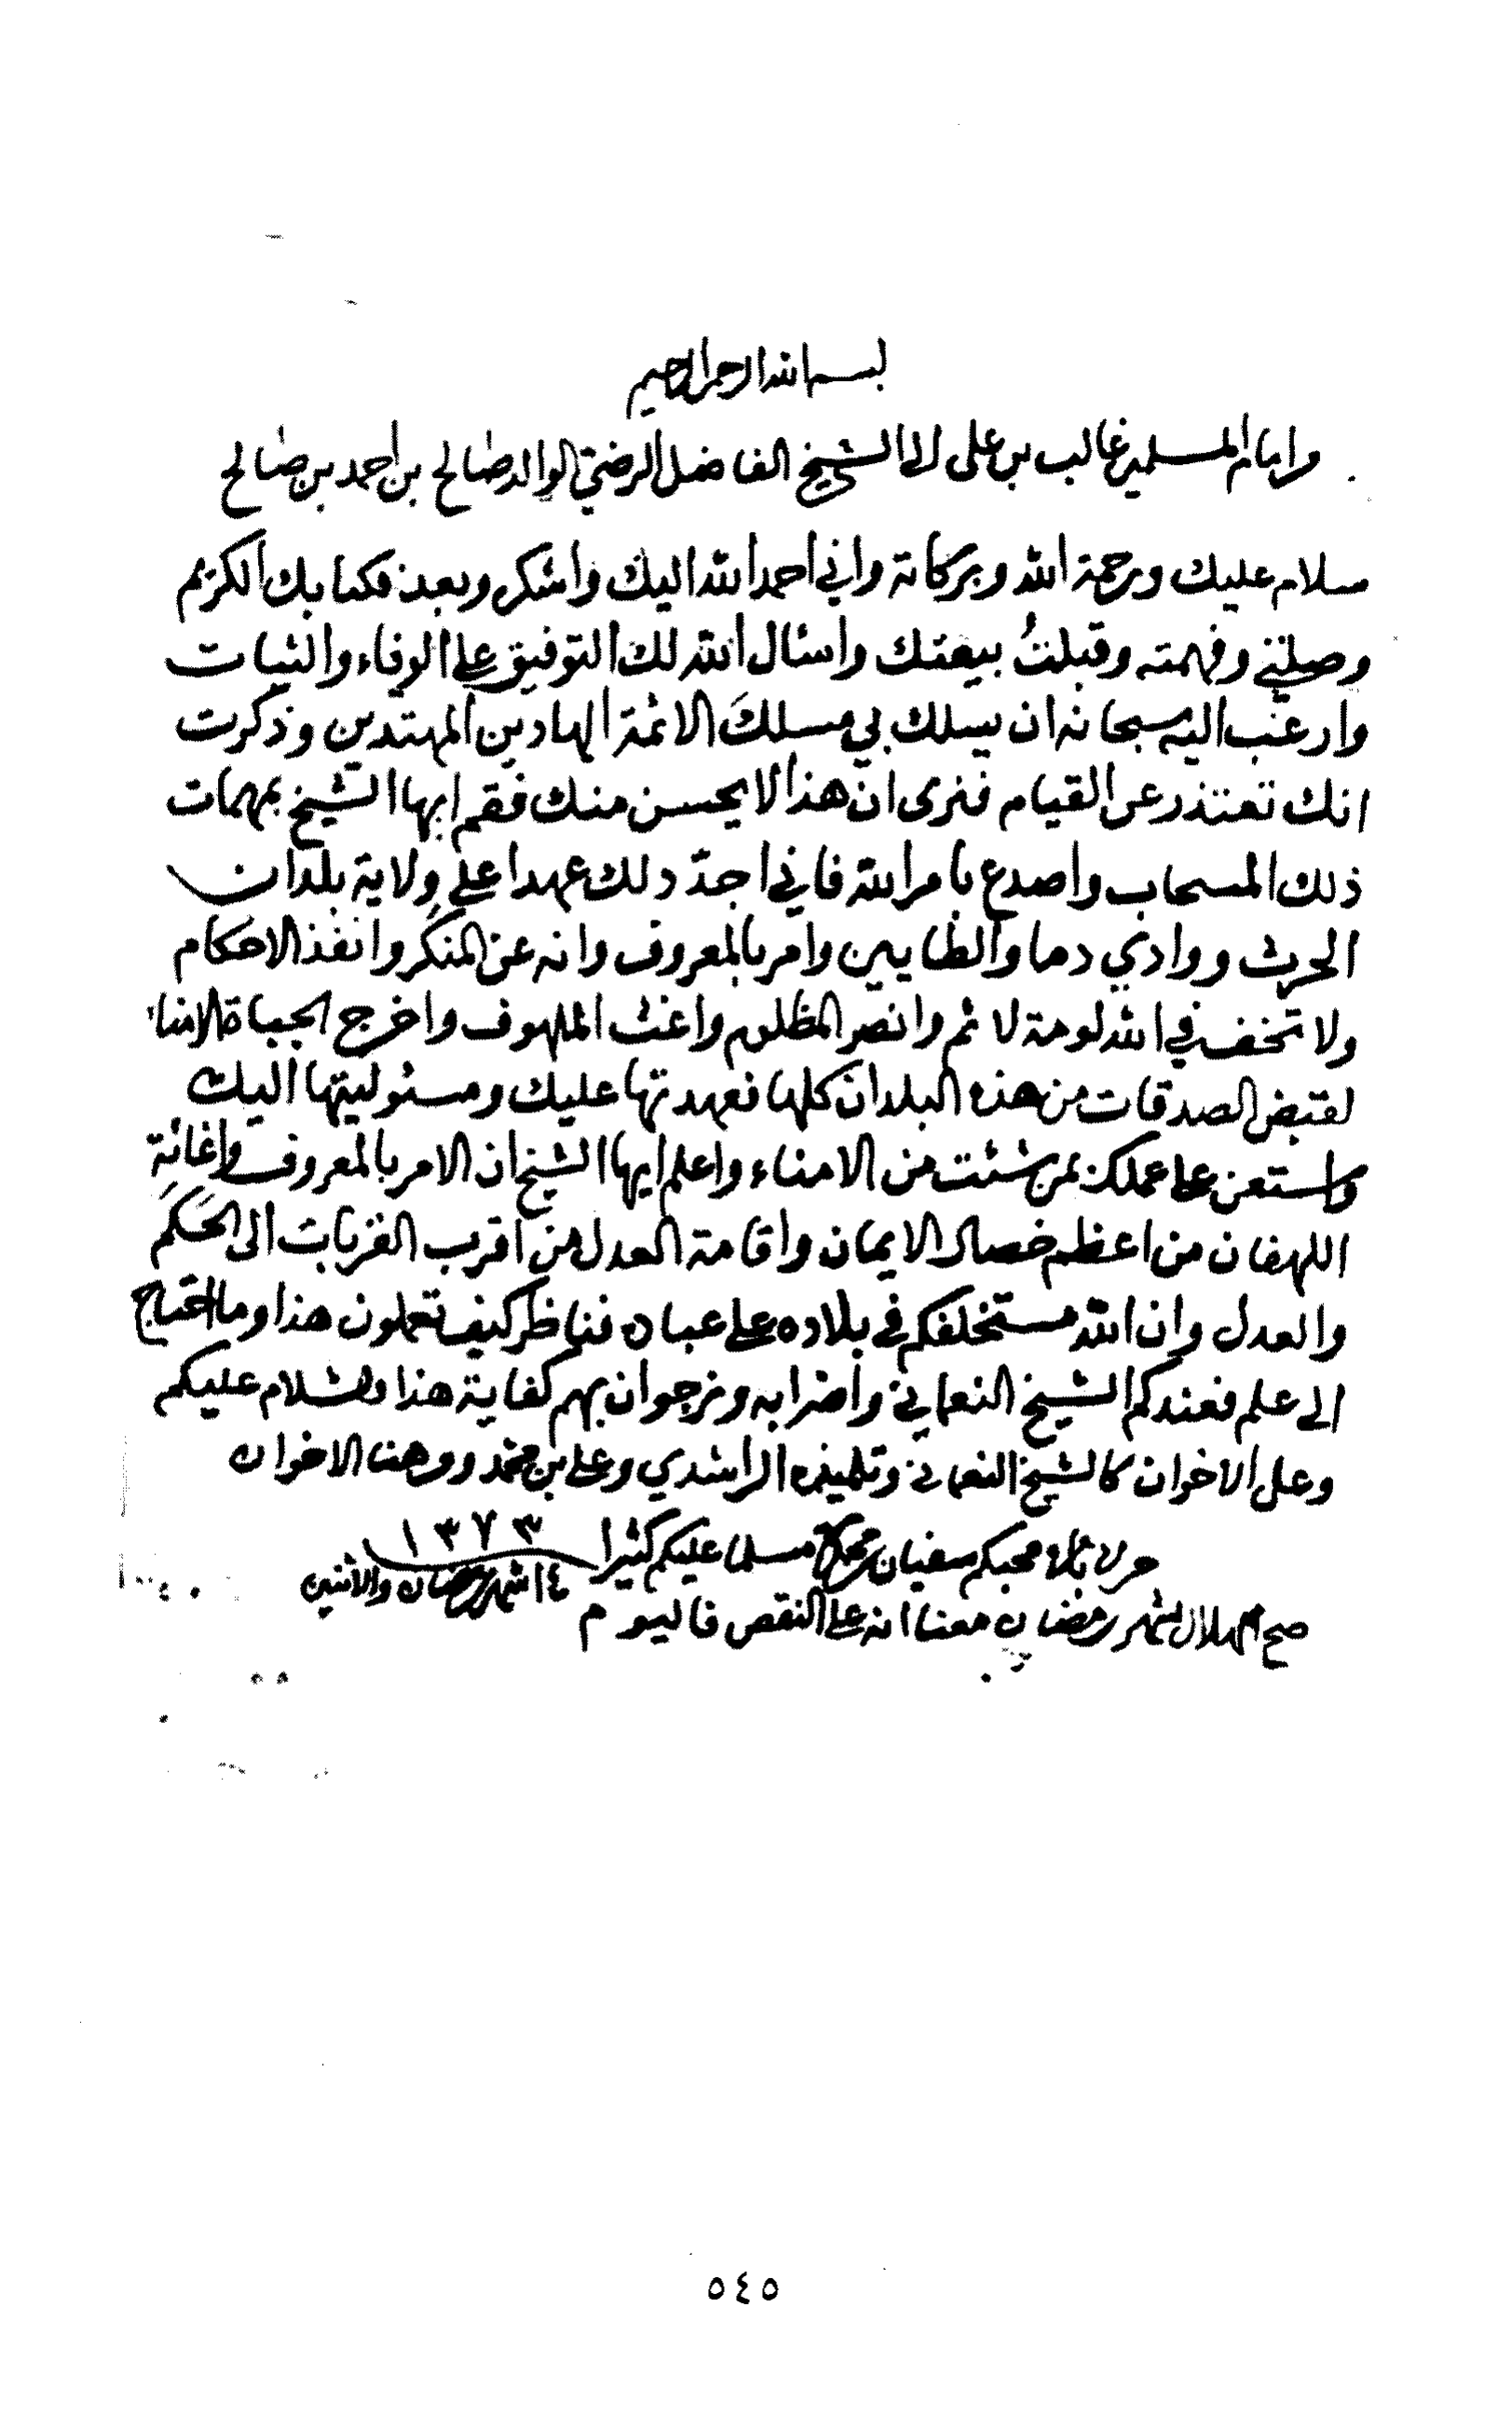 بسم الله الرحمن الرحيم
من امام المسلمين غالب بن علي الى الشيخ الفاضل الرضي الوالد صالح بن احمد بن صالح
سلام عليك ورحمة الله وبركاته واني احمد الله اليك واشكر وبعد فكتابك الكريم
وصلني وفهمته وقبلتُ بيعتك واسئال الله لك التوفيق على الوفاء والثبات
وارغب اليه سبحانه ان يسلك بي مسلكَ الائمة الهادين المهتدين وذكرت
انك تعتذر عن القيام فنرى ان هذا لا يحسن منك فقم ايها الشيخ بمهمات
ذلك المسحاب واصدع بامر الله فاني اجدّد لك عهدا على وِلاية بلدان
الحرث ووادي دما والطايين وامر بالمعروف وانه عن المنكَر وانفذ الاحكام
ولا تخف في الله لومة لائم وانصر المظلوم واغث الملهوف واخرج الجباة الامناء
لقبض الصدقات من هذه البلدان كلها فعهدتها عليك ومسئوليتها اليك
واستعن على عملك بمن شئت من الامناء واعلم ايها الشيخ ان الامر بالمعروف واغاثةِ
اللهفان من اعظم خصال الايمان واقامة العدل من اقرب القربات الى الحَكَم
والعدل وان الله مستخلفكم في بلاده على عباده فناظر كيف تعملون هذا وما احتاج
الى علم فعندكم الشيخ النعماني واضرابه ونرجو ان بهم كفاية هذا والسلام عليكم
وعلى الاخوان كالشيخ النعماني وتلميذه الراشدي وعلي بن محمد ومن هنا الاخوان
محبكم سفيان بن محمد مسلما عليكم كثيرا ١٣٧٣
١٤ شهر رمضان والاثنين
صح الهلال لشهر رمضان معنا انه على النقص فاليوم
٥٤٥